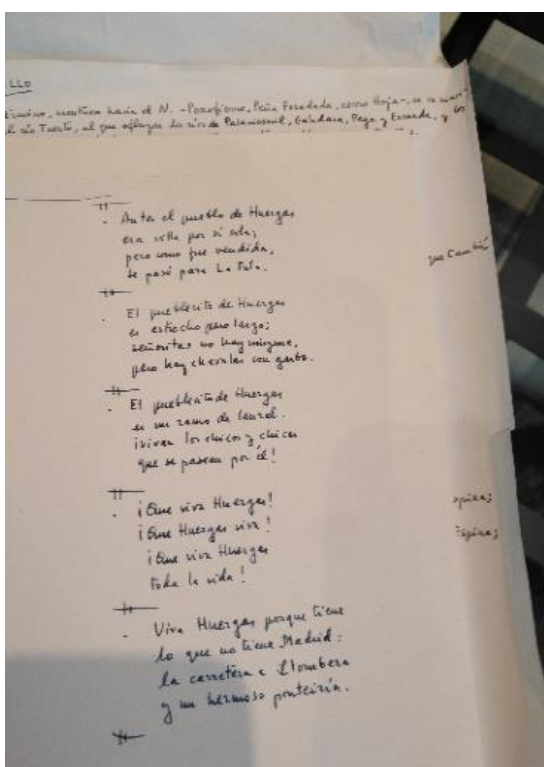 LLO
hacia el N. - Ponfiorno, Peña Foradada, como hoja-, se
el río Tuerto, al que afluyen los ríos de
- Antes el pueblo de Huergas
era villa por sí sola;
pero como fue vendida,
se pasó para La Pola.
- El pueblecito de Huergas
es estrecho pero largo;
señoritas no hay ninguna,
pero hay chavalas con garbo.
- El pueblecito de Huergas
es un ramo de laurel.
¡vivan los chicos y chicas
que se pasean por él!
- ¡Que viva Huergas!
¡Que Huergas viva!
¡Que viva Huergas
toda la vida!
- Viva Huergas porque tiene
lo que no tiene Madrid:
la carretera a Llombera
y un hermoso
que
espina;
espina;